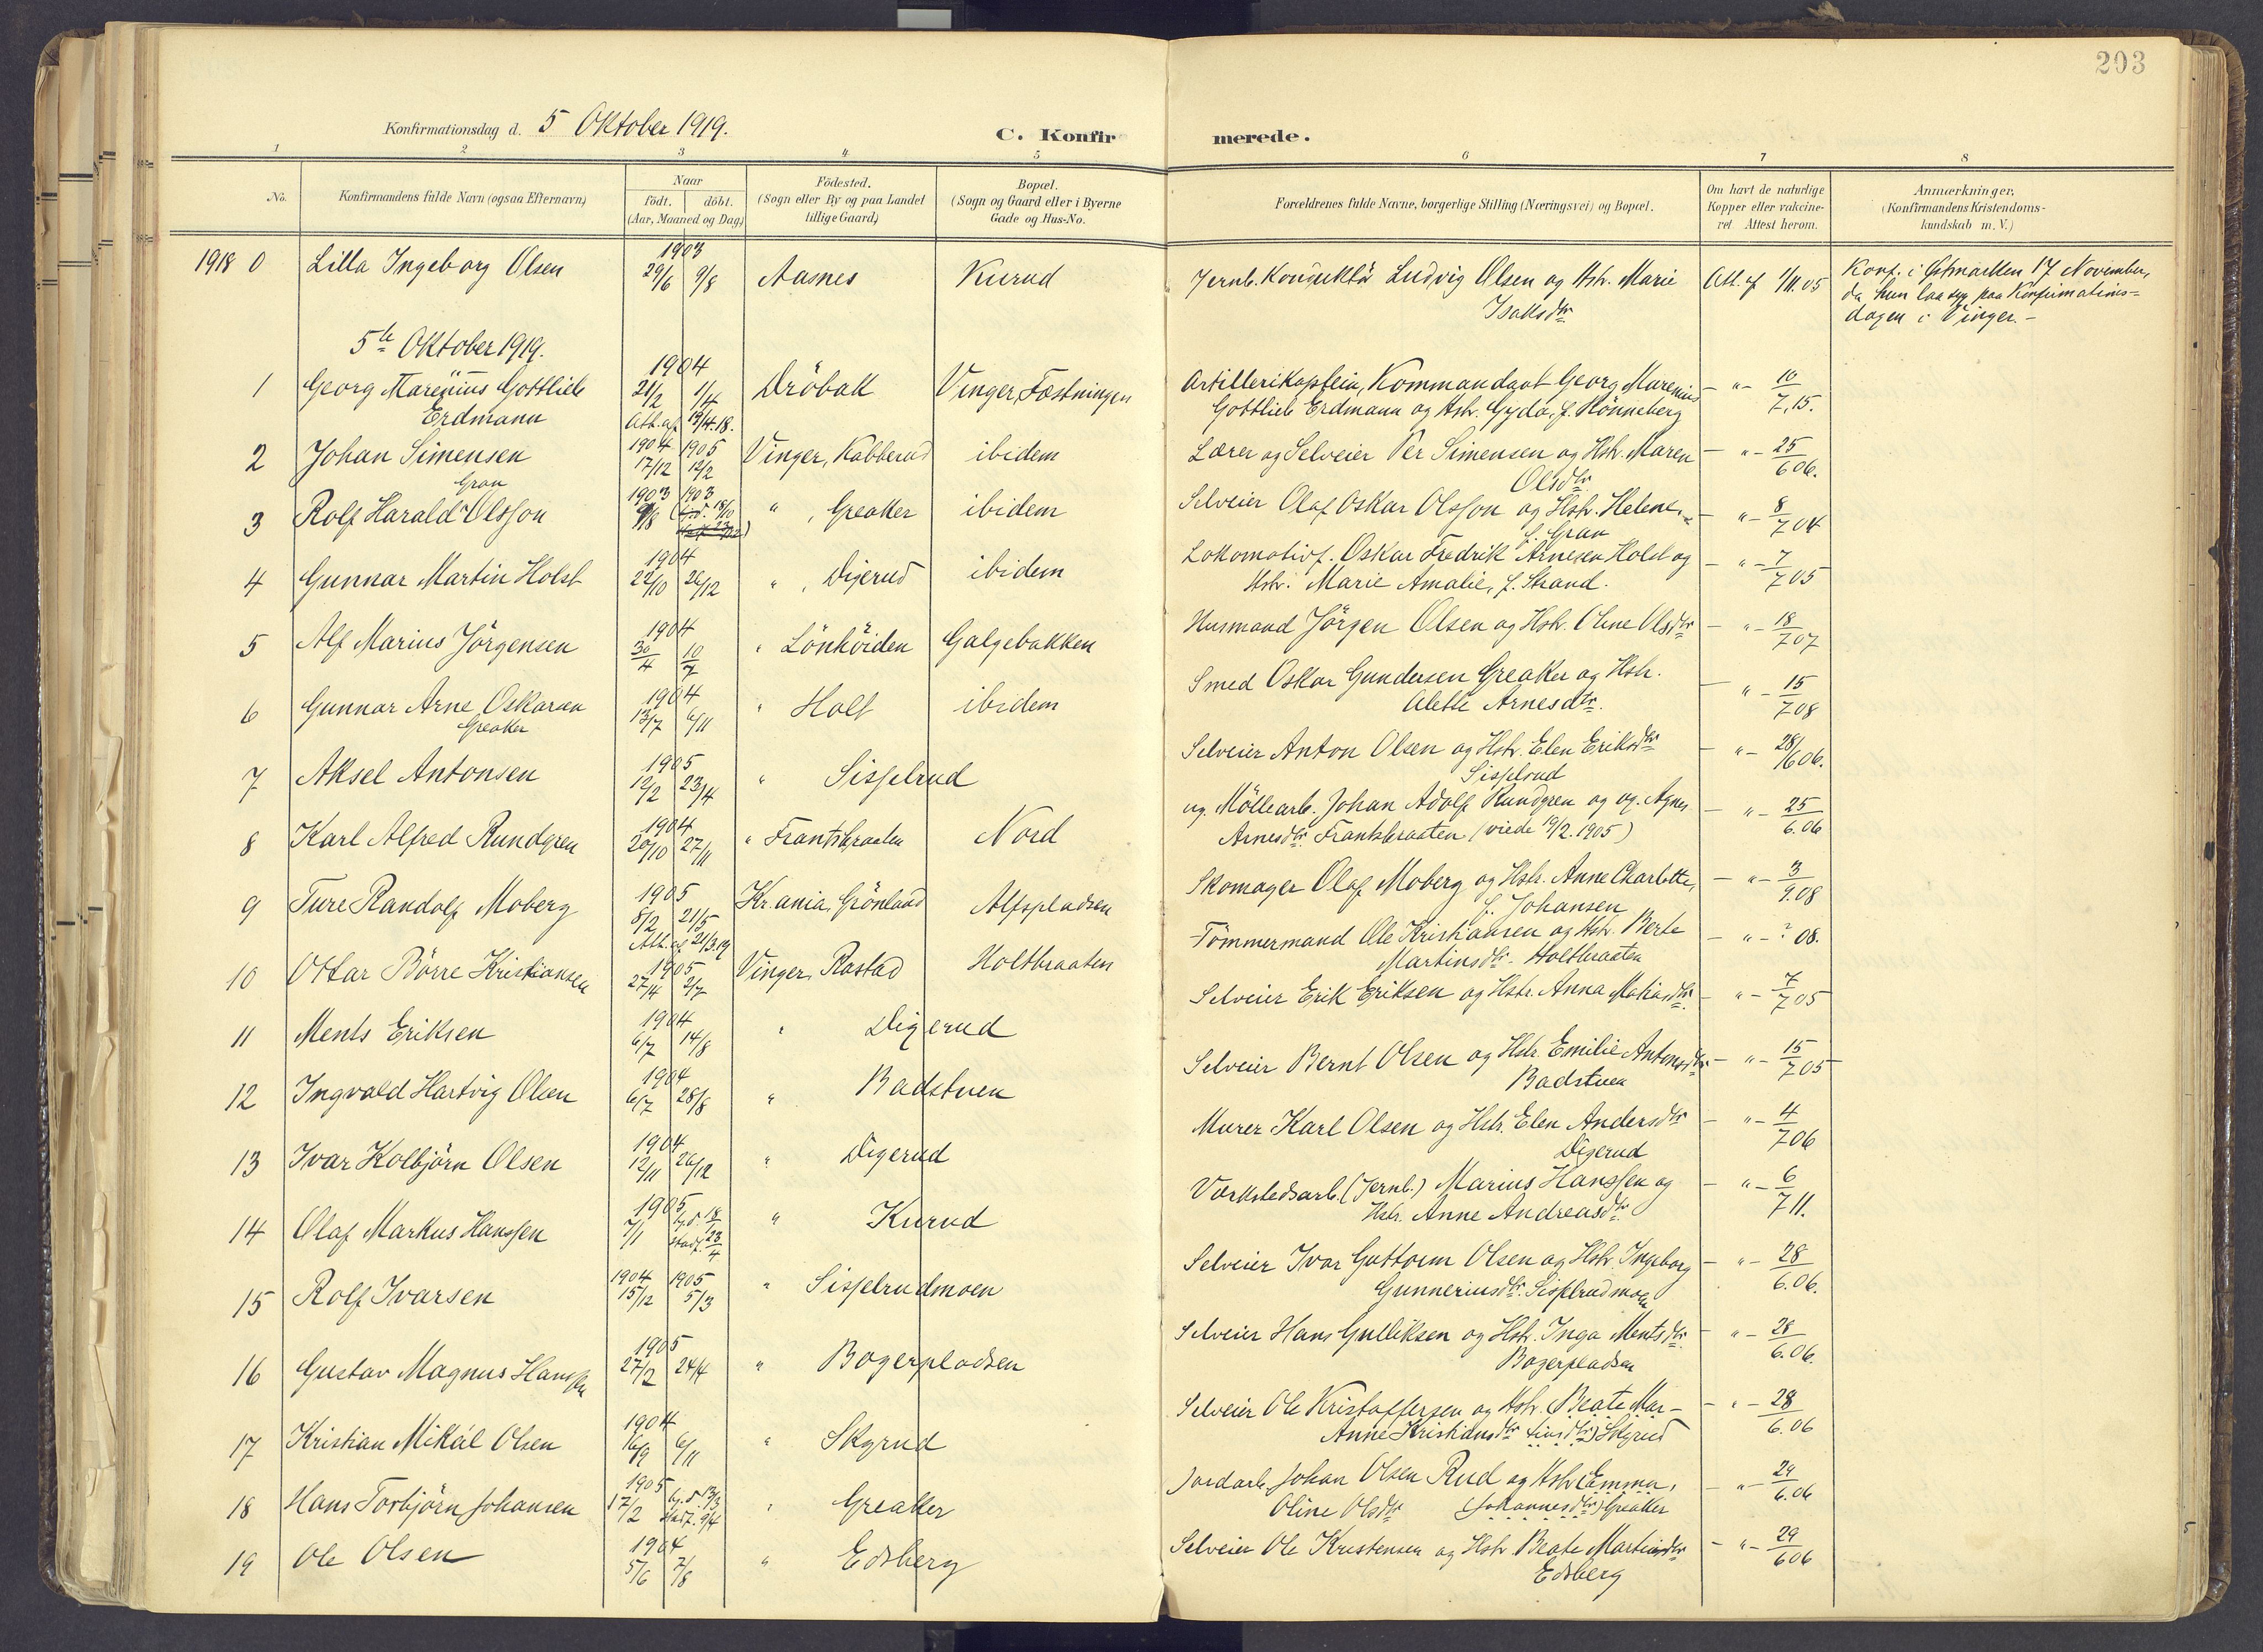 203
Konfirmationsdag d. 5 Oktober 1919.
C. Konfirmerede.
1 2 3 4 5 6 7 8
No.
Konfirmandens fulde Navn (ogsaa Efternavn)
Naar
født. døbt.
(Aar, Maaned og Dag)
Födested.
(Sogn eller By og paa Landet
tillige Gaard)
Bopæl.
(Sogn og Gaard eller i Byerne
Gade og Hus-No.
Forældrenes fulde Navne, borgerlige Stilling (Næringsvei) og Bopæl.
Om havt de naturlige
Kopper eller vakcine-
ret. Attest herom.
Anmærkninger,
(Konfirmandens Kristendoms-
kundskab m. V.)
1918 0 Lilla Ingeborg Olsen 1903 29/6 9/8 Aasnes Kurud Jernb. Konduktör Ludvig Olsen og Hstr. Marie Att. af 1/11.05 Konf. i Østmarken 17 November,
Isaksdtr da hun laa syg paa Konfirmations-
dagen i Vinger.-
5te Oktober 1919.
1 Georg Marenius Gottlieb 1904 21/2 1/4 Dröbak Vinger, Fæstningen Artillerikaptein, Kommandant Georg Marenius - " - 10/7.15.
Erdmann Att. af 19/4.18. Gottlieb Erdmann og Hstr. Gyda, f. Rönneberg
2 Johan Simensen 1904 17/12 1905 12/2 Vinger, Kabberud ibidem Lærer og Selveier Per Simensen og Hstr. Maren - " - 25/6.06.
Olsdtr
Gran
3 Rolf Harald Olsson 1903 9/8 1903 18/10 " , Greaker ibidem Selveier Olaf Oskar Olsson og Hstr. Helene, - " - 8/7 04
f. Gran
4 Gunnar Martin Holst 1904 22/10 26/12 " , Digerud ibidem Lokomotivf. Oskar Fredrik Arnesen Holst og - " - 7/7 05
Hstr. Marie Amalie, f. Strand.
5 Alf Marius Jörgensen 1904 30/4 10/7 " Lönhöiden Galgebakken Husmand Jörgen Olsen og Hstr. Oline Olsdtr - " - 18/7 07
6 Gunnar Arne Oskarsen 1904 13/7 6/11 " Holt ibidem Smed Oskar Gundersen Greaker og Hstr. - " - 15/7 08
Greaker Alette Arnesdtr.
7 Aksel Antonsen 1905 12/2 23/4 " Sisselrud Selveier Anton Olsen og Hstr. Elen Eriksdtr - " - 28/6 06.
Sisselrud
8 Karl Alfred Rundgren 1904 20/10 27/11 " Frantsbraaten Nord ug. Möllearb. Johan Adolf Rundgren og ug. Agnes - " - 25/6.06
Arnesdtr. Frantsbraaten (viede 19/2.1905)
9 Ture Randolf Moberg 1905 8/2 21/5 Kr.ania, Grönland Alfspladsen Skomager Olaf Moberg og Hstr. Anne Charlotte, - " - 3/9.08
Att. af 21/3.19 f. Johansen
10 Ottar Börre Kristiansen 1905 27/4 2/7 Vinger, Rastad Holtbraaten Tömmermand Ole Kristiansen og Hstr. Berte - " - ? 08.
Martinsdtr. Holtbraaten
11 Ments Eriksen 1904 6/7 14/8 " Digerud Selveier Erik Eriksen og Hstr. Anna Matiasdtr. - " - 7/7 05
12 Ingvald Hartvig Olsen 1904 6/7 28/8 " Badstuen Selveier Bernt Olsen og Hstr. Emilie Antonsdtr - " - 15/7 05
Badstuen
13 Ivar Kolbjörn Olsen 1904 12/11 26/12 " Digerud Murer Karl Olsen og Hstr. Elen Andersdtr - " - 4/7 06
Digerud
14 Olaf Markus Hanssen 1905 7/1 hj.d. 18/1 stadf. 23/4 " Kurud Værkstedsarb. (Jernb.) Marius Hanssen og - " - 6/7 11.
Hstr. Anne Andreasdtr.
15 Rolf Ivarsen 1904 15/12 1905 5/3 " Sisselrudmoen Selveier Ivar Guttorm Olsen og Hstr. Ingeborg - " - 28/6.06.
Gunneriusdtr. Sisselrudmoen
16 Gustav Magnus Hanssen 1905 27/2 24/4 " Bogerpladsen Selveier Hans Gulliksen og Hstr. Inga Mentsdtr. - " - 28/6.06.
Bogerpladsen
17 Kristian Mikael Olsen 1904 16/9 6/11 " Skyrud Selveier Ole Kristoffersen og Hstr. Beate Mar- - " - 28/6.06
Anne Kristiansdtr tinsdtr) Skyrud
18 Hans Torbjörn Johansen 1905 17/2 hj.d. 13/3 stadf. 9/4 " Greaker Jordarb. Johan Olsen Rud og Hstr. Emma, - " - 29/6.06
Oline Olsdtr (Johannesdtr) Greaker
19 Ole Olsen 1904 5/6 7/8 " Edsberg Selveier Ole Kristensen og Hstr. Beate Martinsdtr - " - 29/6 06
Edsberg